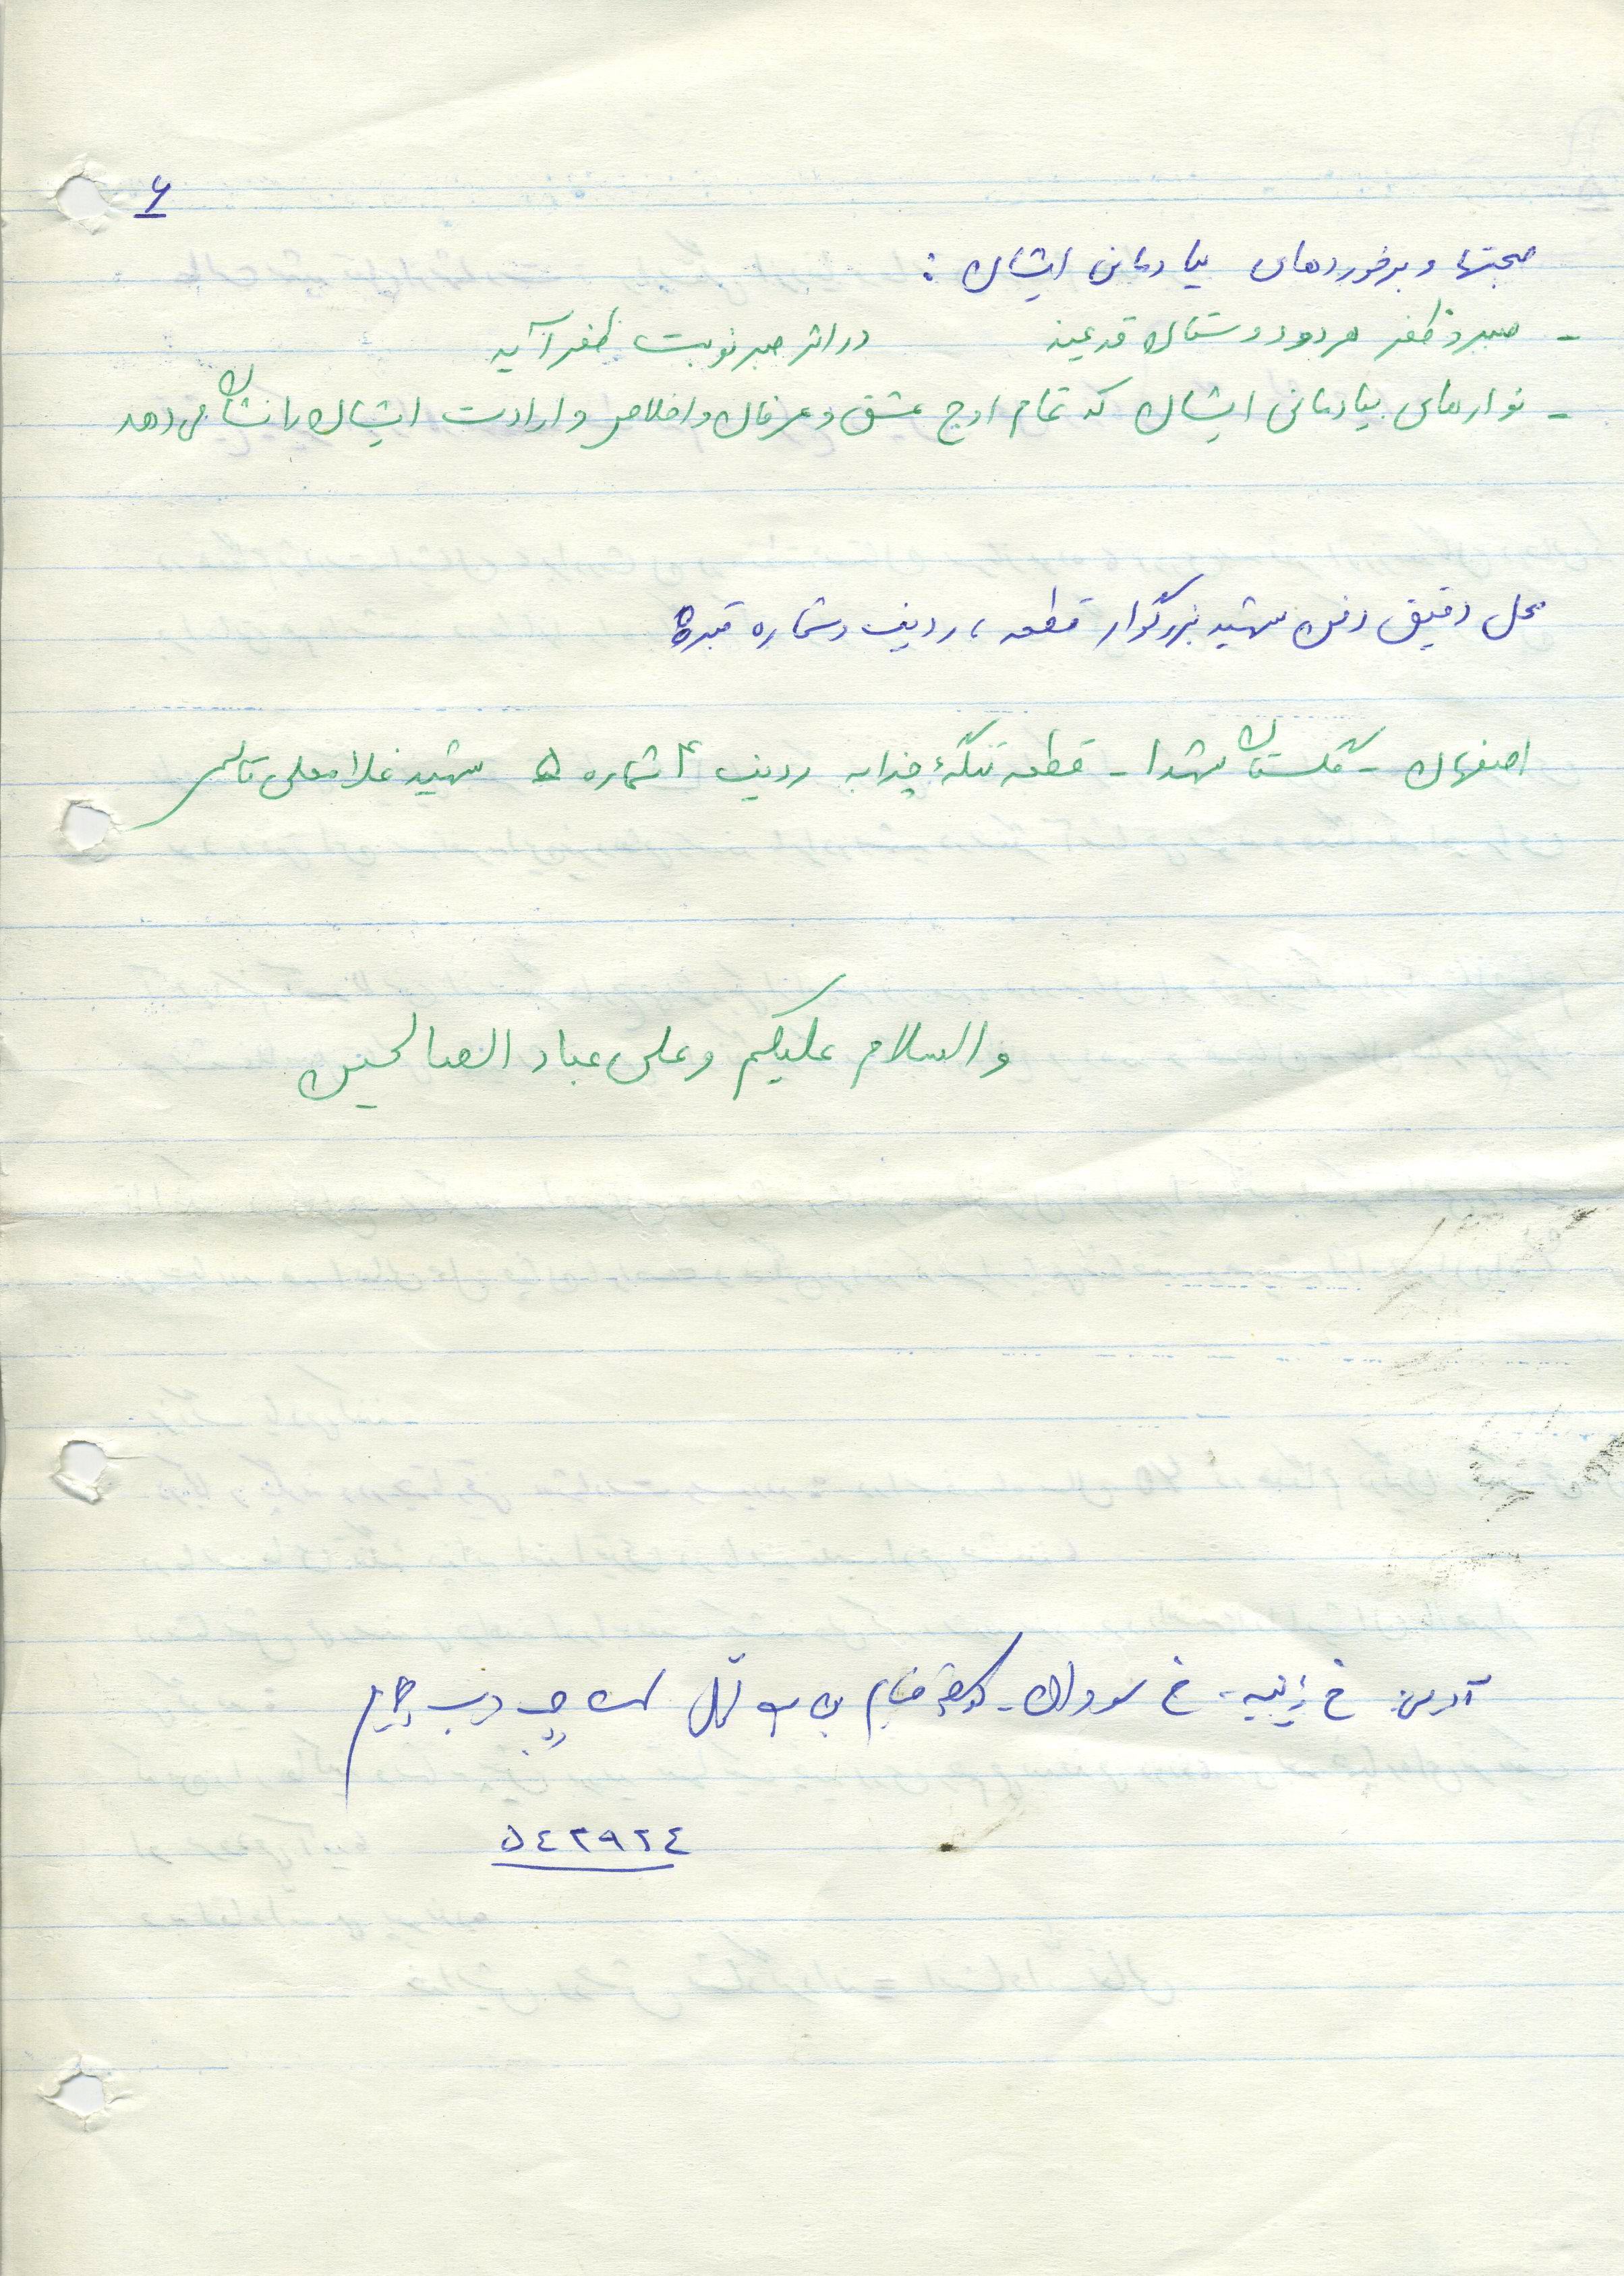 ۶
صحبتها و برخوردهای بیادمانی ایشان :
- صبر و ظفر هر دو دوستان قدیمند در اثر صبر نوبت ظفر آید
- نوارهای بیادمانی ایشان که تمام اوج عشق و عرفان و اخلاص و ارادت ایشان را نشان می‌دهد
محل دقیق دفن شهید بزرگوار قطعه ، ردیف و شماره قبر
اصفهان - گلستان شهدا - قطعه تنگهٔ چزابه ردیف ۴ شماره ۵ شهید غلامعلی قاسمی
والسلام علیکم و علی عباد الصالحین
آدرس: خ زینبیه - خ سودان - کوچه قیام بن بست چپ درب چهارم
۵۴۲۹۲۴